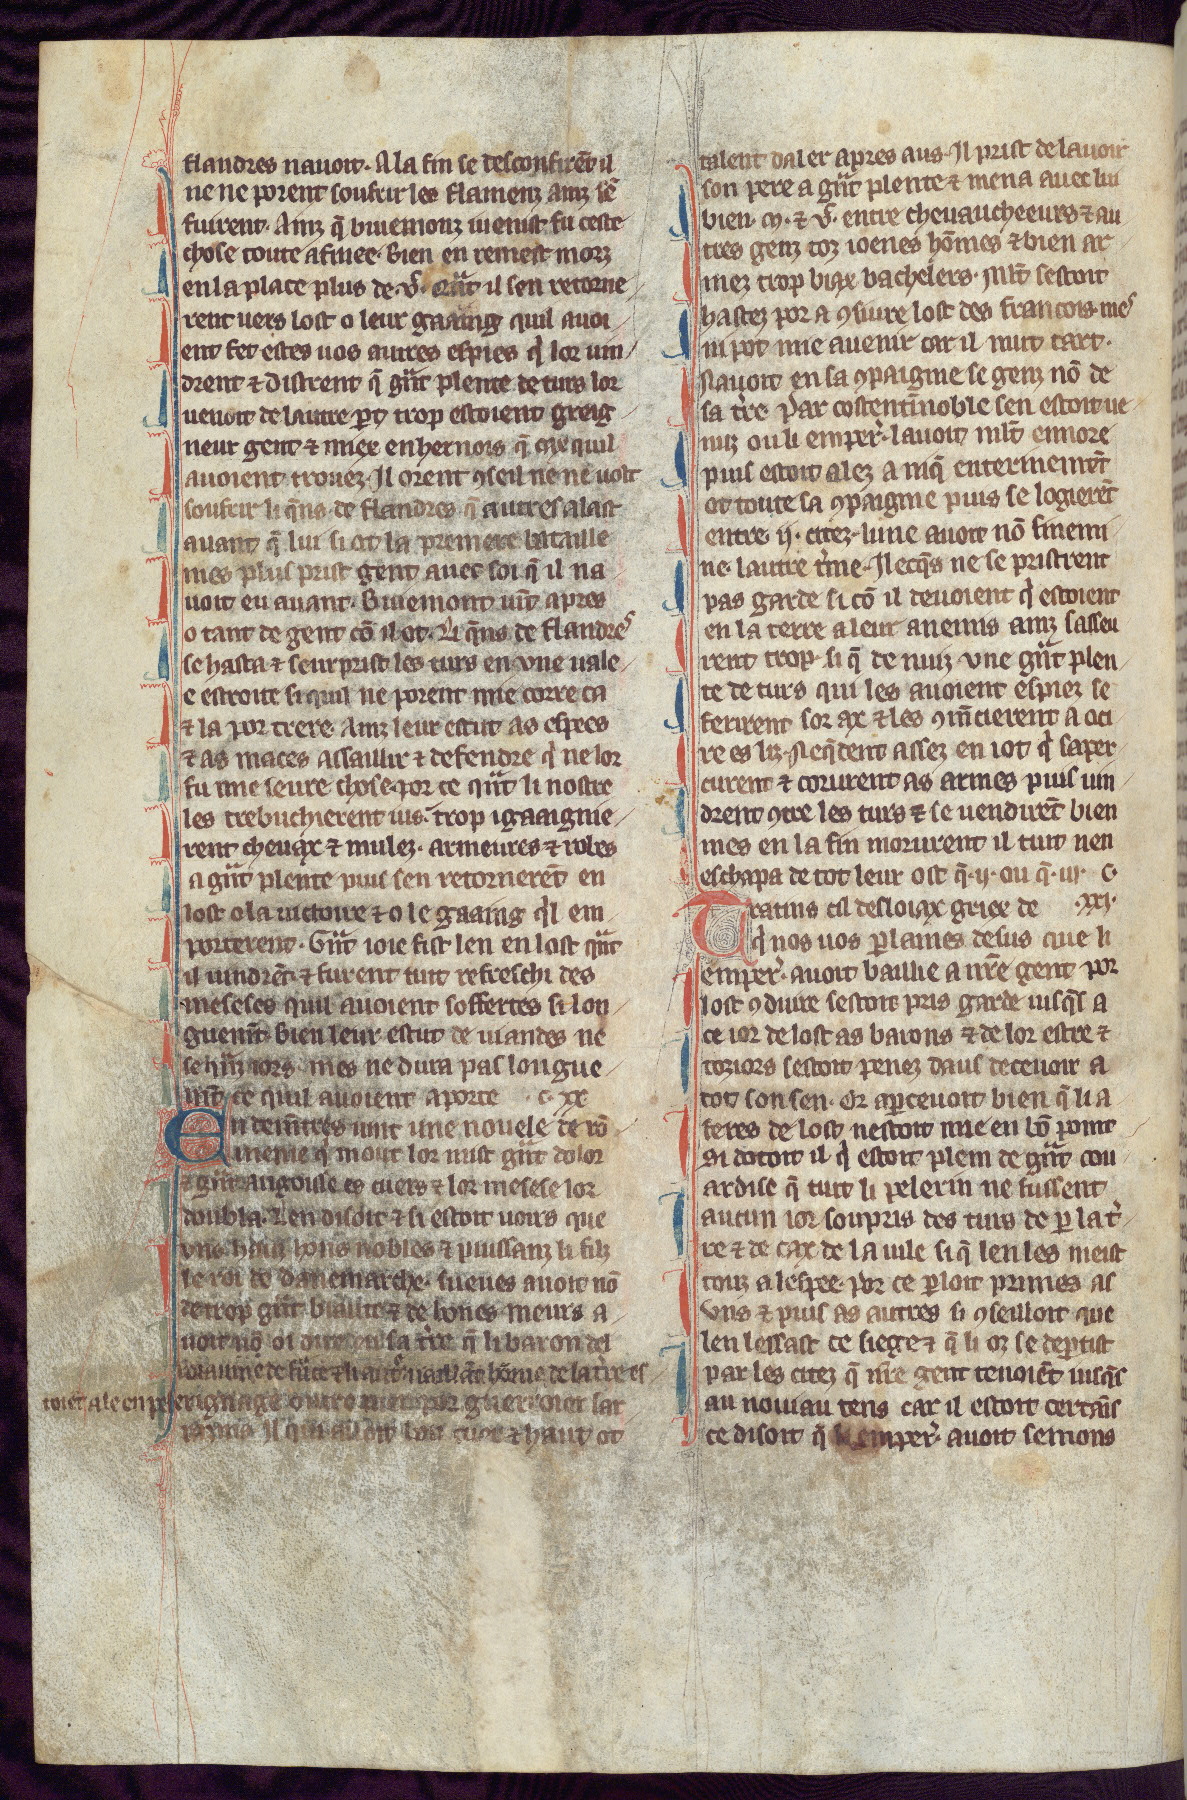 flandres navoit. A la fin se desconfirēt il
ne ne porent soufrir les flamenz ainz sē
fuirent. Ainz q̄ buiemonz uenist fu ceste
chose toute afinee. Bien en remest morz
en la place plus de .vͨ. Qūt il sen retorne
rent uers lost o leur gaaing quil auoi
ent fet estes uos autres espies q̇ lor uin
drent ⁊ distrent q̄ gūt plente de turs lor
uenoit de lautre ꝑt trop estoient greig
neur gent ⁊ miex enhernois q̄ cex quil
auoient trouez. Il orent ꝯseil ne ne uolt
soufrir li q̄ns de flandres q̄ autres alast
auant q̄ lui si ot la premiere bataille
mes plus prist gent auec soi q̄ il na
uoit eu auant. Buiemont uīt apres
o tant de gent cō il ot. Li q̄ns de flandres
se hasta ⁊ seurprist les turs en vne uale
e estroite si quil ne porent mie corre ca
⁊ la por trere. Ainz leur estut as espees
⁊ as maces assaillir ⁊ defendre q̇ ne lor
fu mie seure chose. por ce qūt li nostre
les trebuchierent ius. trop i gaaignie
rent cheuax ⁊ mulez. armeures ⁊ robes
a gūt plente puis sen retornerēt en
lost o la uictoire ⁊ o le gaaing q̇l em
porterent. Gūt ioie fist len en lost qūt
il uindrēt. ⁊ furent tuit refreschi des
meseses quil auoient soffertes si lon
guemēt. Bien leur estut de uiandes ne
mes ne dura pas longue
mēt ce quil auoient aporte .c.xx
En demētres uint une nouele de rō
menie q̇ mout lor mist gūt dolor
⁊ gūt angoisse es cuers ⁊ lor mesese lor
doubla. Len disoit ⁊ si estoit uoirs que
vns hauz hons nobles ⁊ puissanz li filz
le roi de danemarche. sueues auoit nō
de trop gūt biaute ⁊ de bones meurs a
uoit nō. oi dire en sa t̄re q̄ li baron del
roiaume de frāce ⁊ li autre uaillāt hōme de la t̄re es
toiēt ale en pelerignage outre mer por guerroier sar
razins Il qui auoit bon cuer ⁊ haut ot
talent daler apres aus. Il prist de lauoir
son pere a gūt plente ⁊ mena auec lui
bien .m. ⁊ .vͨ. entre cheuaucheeurs ⁊ au
tres genz toz ioenes hōmes ⁊ bien ar
mez trop biax bachelers. Mlt sestoit
hastez por a ꝯsiuire lost des francois mes
ni pot mie auenir car il mut tart.
Nauoit en sa ꝯpaignie se genz nō de
sa t̄re. Par costentīnoble sen estoit ue
nuz ou li emper̄. lauoit mlt ennore
puis estoit alez a niq̄ enterinemēt
ot toute sa ꝯpaignie puis se logierēt
entre .ij. citez. lune auoit nō finemi
ne. lautre t̄me. Ilecq̄s ne se pristrent
pas garde si cō il deuoient q̇ estoient
en la terre a leur anemis ainz sasseu
rent trop. si q̄ de nuiz vne gūt plen
te de turs qui les auoient espiez se
ferirent sor ax ⁊ les ꝯmēcierent a oci
re es liz. Neq̄dent assez en i ot q̇ saper
curent ⁊ corurent as armes puis uin
drent ꝯtre les turs ⁊ se uendirēt bien
mes en la fin morurent il tuit nen
eschapa de tot leur ost q̄ .ij. ou q̄ .iij. .c.
Tratins cil desloiax griex de .xxj.
q̇ nos uos ꝑlames desus que li
emper̄. auoit baillie a n̄re gent por
lost ꝯduire sestoit pris garde iusq̄s a
ce ior de lost as barons ⁊ de lor estre ⁊
toziors sestoit penez daus deceuoir a
tot son sen. Or aꝑceuoit bien q̄ li a
feres de lost nestoit mie en bō point
si dotoit il q̇ estoit plein de gūt cou
ardise q̄ tuit li pelerin ne fussent
aucun ior soupris des turs de ꝑ la t̄
re ⁊ de cax de la uile si q̄ len les meist
touz a lespee. por ce ꝑloit primes as
vns ⁊ puis as autres si ꝯseilloit que
len lessast ce siege ⁊ q̄ li oz se deꝑtist
par les citez q̄ n̄re gent tenoiēt iusq̄s
au nouiau tens car il estoit certains
ce disoit q̄ li emper̄. auoit semons